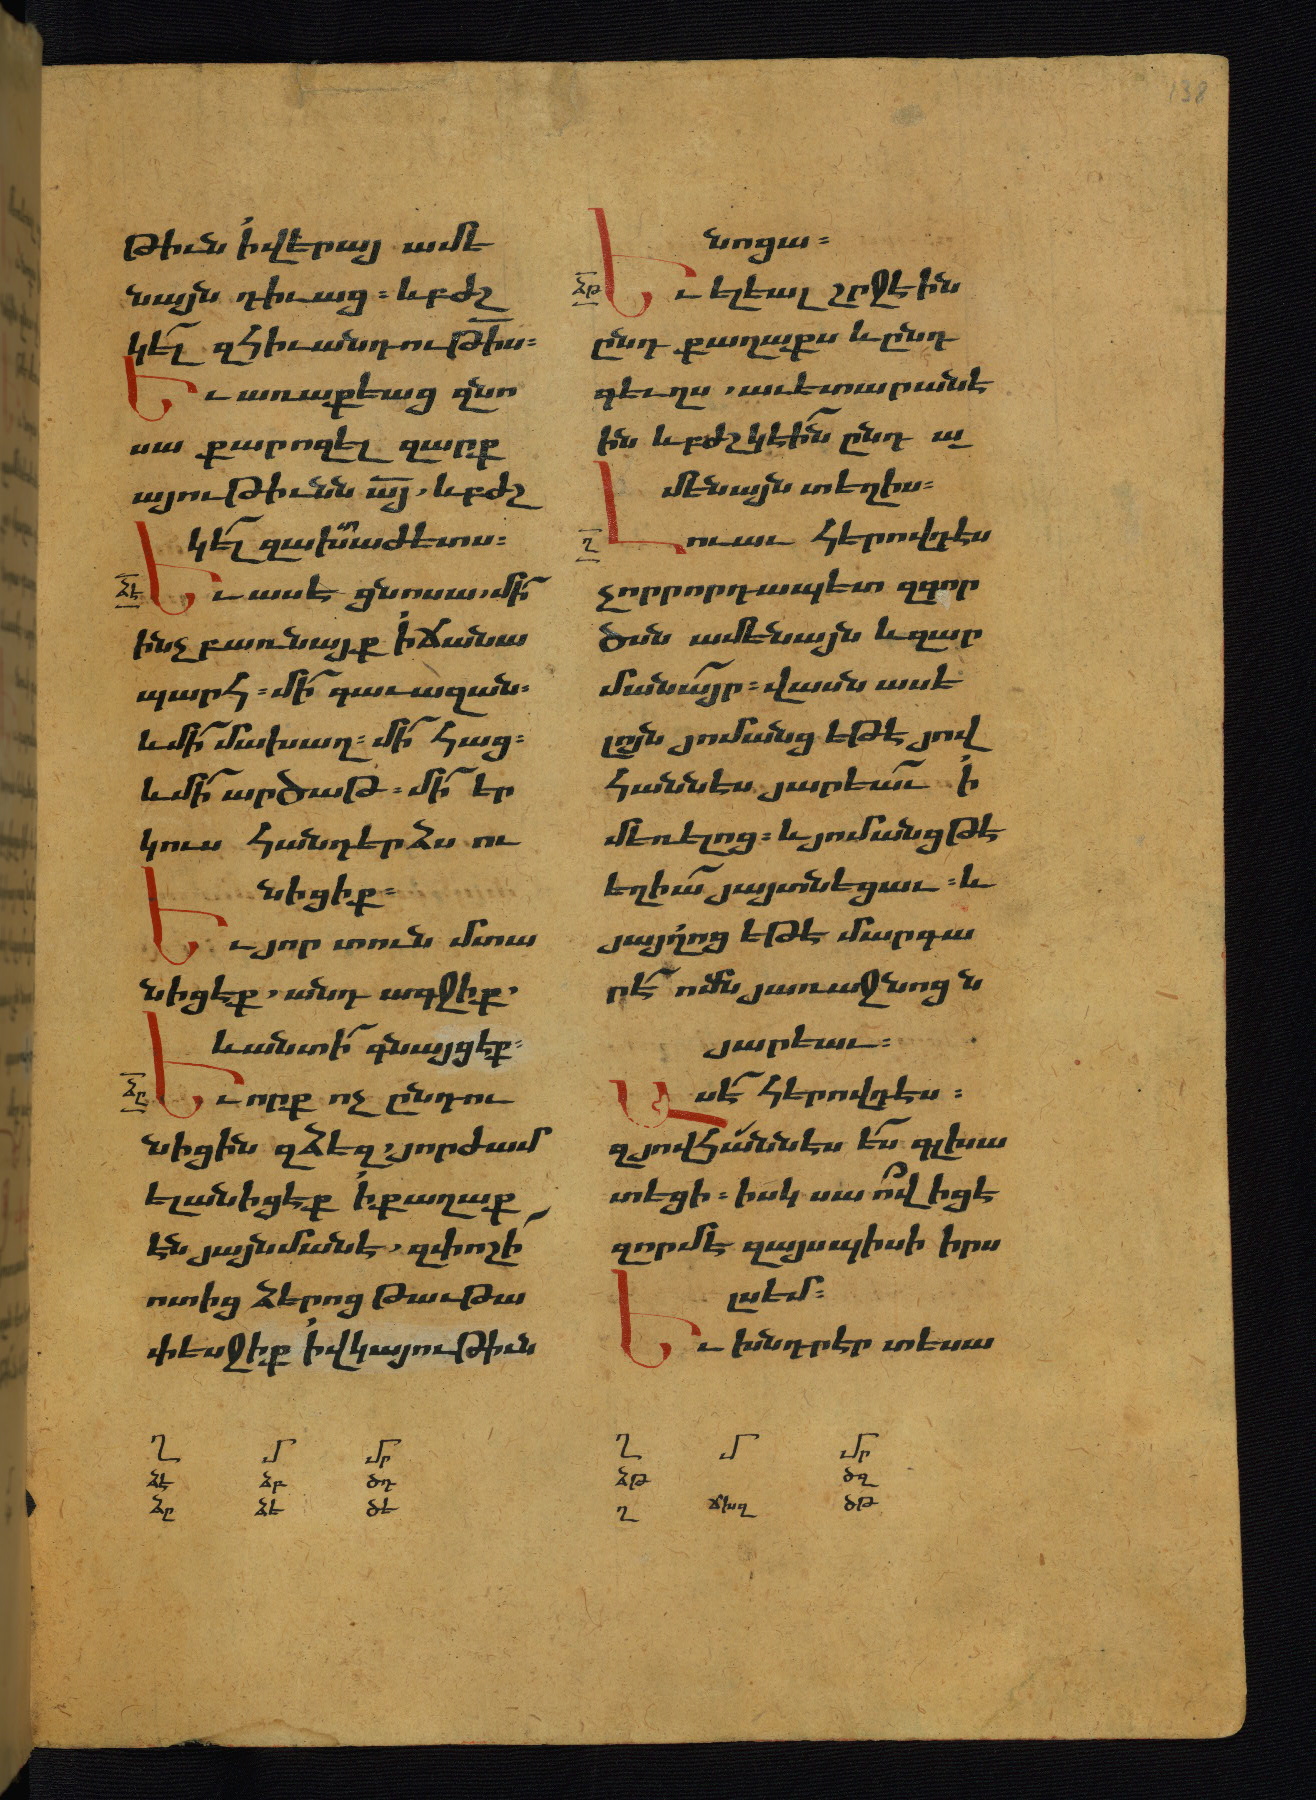 138
թիւն ի վերայ ամե
նայն դիւաց։ և բժշ
կել զհիւանդութիս։
Եւ առաքեաց զնո
սա քարոզել զարք
այութիւնն այ, և բժշ
կել զախտաժետս։
ՁԷ Եւ ասէ ցնոսա, մի
ինչ բառնայք ի ճանա
պարհ։ մի գաւազան։
և մի մախաղ։ մի հաց։
և մի արծաթ։ մի եր
կուս հանդերձս ու
նիցիք։
Եւ յոր տուն մտա
նիցէք, անդ ագջիք,
և անտի գնայցէք։
ՁԸ Եւ որք ոչ ընդու
նիցին զձեզ, յորժամ
ելանիցէք ի քաղաք
էն յայնմանէ, զփոշի
ոտից ձերոց թաւթա
փեսջիք ի վկայութիւն
նոցա։
ՁԹ Եւ ելեալ շրջէին
ընդ քաղաքս և ընդ
գեւղս, աւետարանէ
ին և բժշկէին ընդ ա
մենայն տեղիս։
Ղ Լուաւ Հերովդէս
չորրորդապետ զգոր
ծսն ամենայն և զար
մանայր։ վասն ասե
լոյն յոմանց եթէ յով
հաննէս յարեաւ ի
մեռելոց։ և յոմանց թէ
եղիա յայտնեցաւ։ և
յայլոց եթէ մարգա
րէ ոմն յառաջնոց ն
յարեաւ։
Ասէ հերովդէս։
զյովհաննէս ես գլխա
տեցի։ իսկ սա ով իցէ
զորմէ զայսպիսի իրս
լսեմ։
Եւ խնդրէր տեսա
Ղ Մ Մր
ՁԷ ՁԲ ԾԴ
ՁԸ ՁԵ ԾԵ
Ղ Մ Մր
ՁԹ ԾԶ
Ղ ՃԽԳ ԾԹ